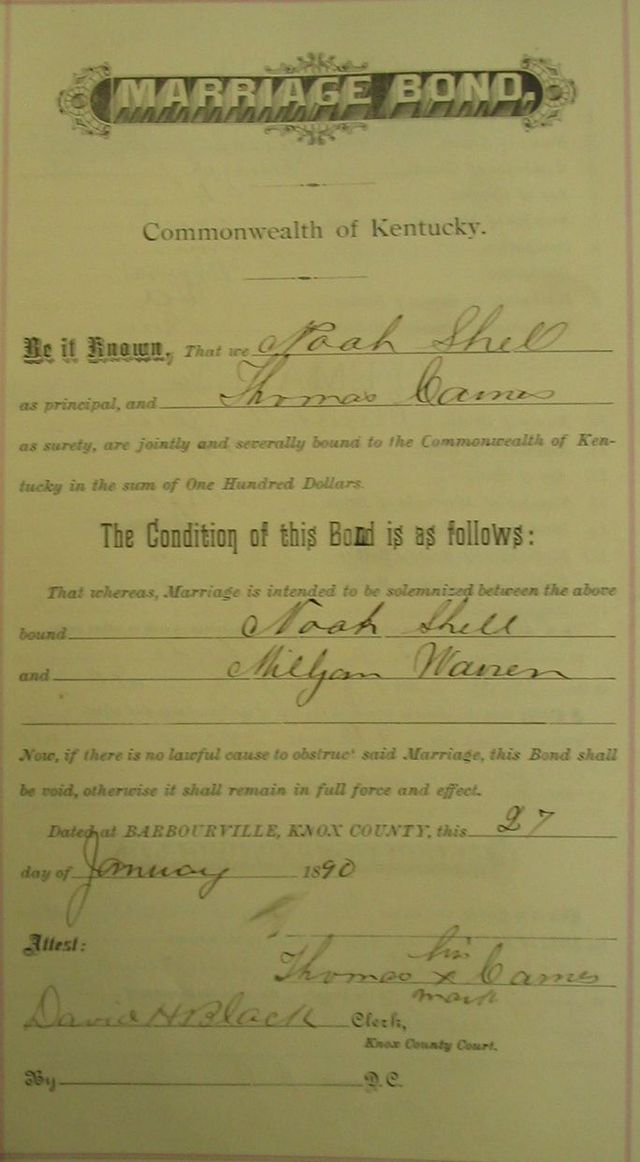 MARRIAGE BOND.
Commonwealth of Kentucky.
Be it Known, That we Noah Shell
as principal, and Thomas Carnes
as surety, are jointly and severally bound to the Commonwealth of Ken-
tucky in the sum of One Hundred Dollars.
The Condition of this Bond is as follows:
That whereas, Marriage is intended to be solemnized between the above
bound Noah Shell
and Warren
Now, if there is no lawful cause to obstruct said Marriage, this Bond shall
be void, otherwise it shall remain in full force and effect.
Dated at BARBOURVILLE, KNOX COUNTY, this 27
day of January 1890
Attest:
his
Thomas x Carnes
mark
David H Black Clerk,
Knox County Court.
By D.C.